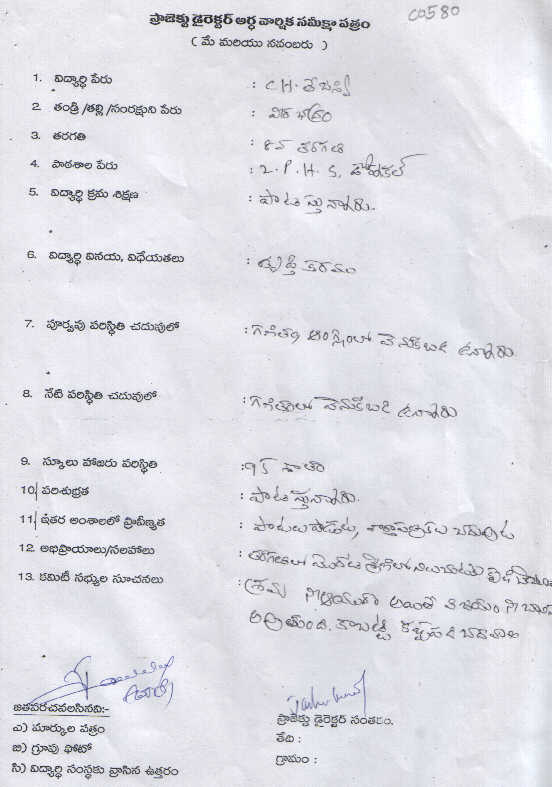 ప్రాజెక్టు డైరెక్టర్ అర్ధ వార్షిక సమీక్షా పత్రం
CO580
( మే మరియు నవంబరు )
1. విద్యార్థి పేరు : CH. తేజస్వి
2. తండ్రి /తల్లి /సంరక్షుని పేరు : వీరభద్రం
3. తరగతి : 8వ తరగతి
4. పాఠశాల పేరు : Z.P.H.S,
5. విద్యార్థి క్రమ శిక్షణ : పాటిస్తున్నారు.
6. విద్యార్థి వినయ, విధేయతలు : తృప్తికరము
7. పూర్వపు పరిస్థితి చదువులో : గణితం, ఆంగ్లంలో వెనుకబడి ఉన్నారు
8. నేటి పరిస్థితి చదువులో : గణితంలో వెనుకబడి ఉన్నారు
9. స్కూలు హాజరు పరిస్థితి : 95 శాతం
10) పరిశుభ్రత : పాటిస్తున్నారు.
11) ఇతర అంశాలలో ప్రావీణ్యత : పాటలు పాడుట,
12. అభిప్రాయాలు/సలహాలు : తరగతిలో మొదటి
13. కమిటీ సభ్యుల సూచనలు : శ్రమ నీ ఆయుధం అయితే విజయం నీ
అవుతుంది. కాబట్టి కష్టపడి చదవాలి
జతపరచవలసినవి:-
ఎ) మార్కుల పత్రం
బి) గ్రూపు ఫోటో
సి) విద్యార్థి సంస్థకు వ్రాసిన ఉత్తరం
ప్రాజెక్టు డైరెక్టర్ సంతకం.
తేది :
గ్రామం :